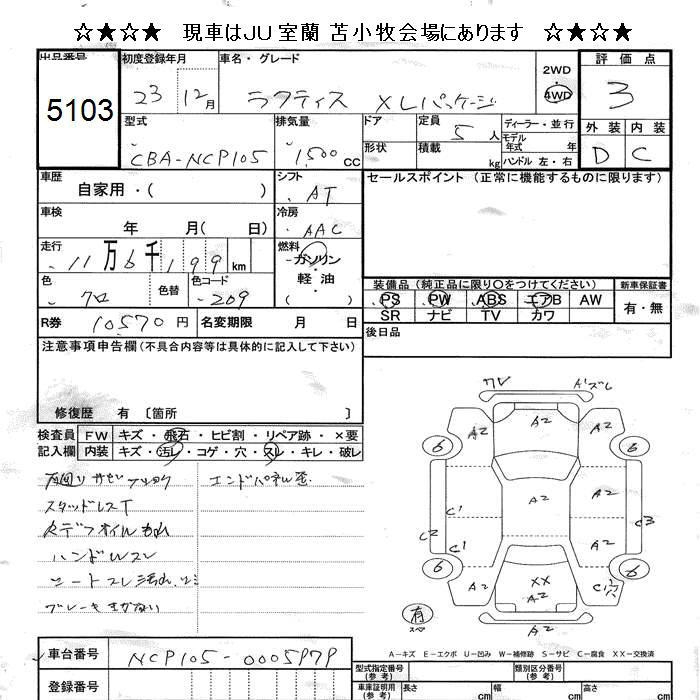 ☆★☆★ 現車はJU室蘭 苫小牧会場にあります ☆★☆★
出品番号 初度登録年月 車名・グレード 2WD 評価点
5103 23 12月 ラクティス XLパッケージ 4WD 3
型式 排気量 ドア 定員 5人 ディーラー・並行 外装 内装
モデル年式 年式
CBA-NCP105 1,500cc 形状 積載 kg ハンドル 左・右 D C
車歴 シフト セールスポイント (正常に機能するものに限ります)
自家用・( ) AT
車検 冷房
年 月( 日) AAC
走行 燃料
11万6千199km ガソリン
軽油
色 色替 色コード 装備品 (純正品に限り○をつけてください) 新車保証書
クロ 209 ( ) PS PW ABS エアB AW 有・無
SR ナビ TV カワ
R券 10570円 名変期限 月 日 後日品
注意事項申告欄(不具合内容等は具体的に記入して下さい)
修復歴 有 〔箇所 〕
検査員 FW キズ・飛石・ヒビ割・リペア跡・×要
記入欄 内装 キズ・汚レ・コゲ・穴・スレ・キレ・破レ
エンドパネル歪
スタッドレスT
ハンドルスレ
シートスレ
ブレーキきかない
ワレ
A2 A2 A2
6 6
A2 A2
C1 C2 C3
C1 A2
6 6
A2 XX A2 C1穴
有 スペア
A2
A-キズ E-エクボ U-凹み W-補修跡 S-サビ C-腐食 XX-交換済
車台番号 NCP105-0005979 型式指定番号 (参考) 類別区分番号 (参考)
登録番号 車庫証明用 (参考) 長さ cm 幅 cm 高さ cm